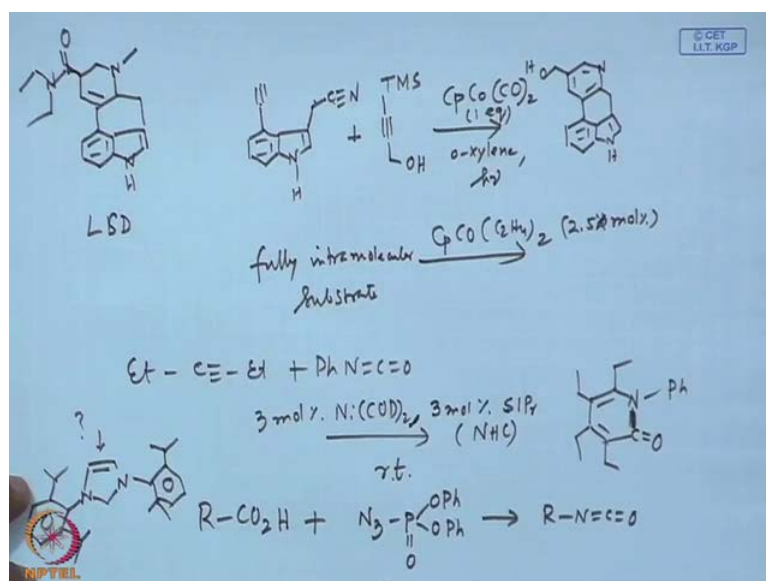 © CET
I.I.T. KGP
O
N
N
N
H
LSD
C≡N
N
H
+
TMS
OH
CpCo(CO)2
(1 eq)
o-xylene,
hν
H
O
N
N
H
fully intramolecular
substrate
CpCO(C2H4)2 (2.5 mol%)
Et - C≡ - Et + Ph N=C=O
3 mol% Ni(COD)2, 3 mol% SIPr
(NHC)
r.t.
N - Ph
C=O
?
N
N
R-CO2H + N3-P
OPh
OPh
O
→ R-N=C=O
NPTEL